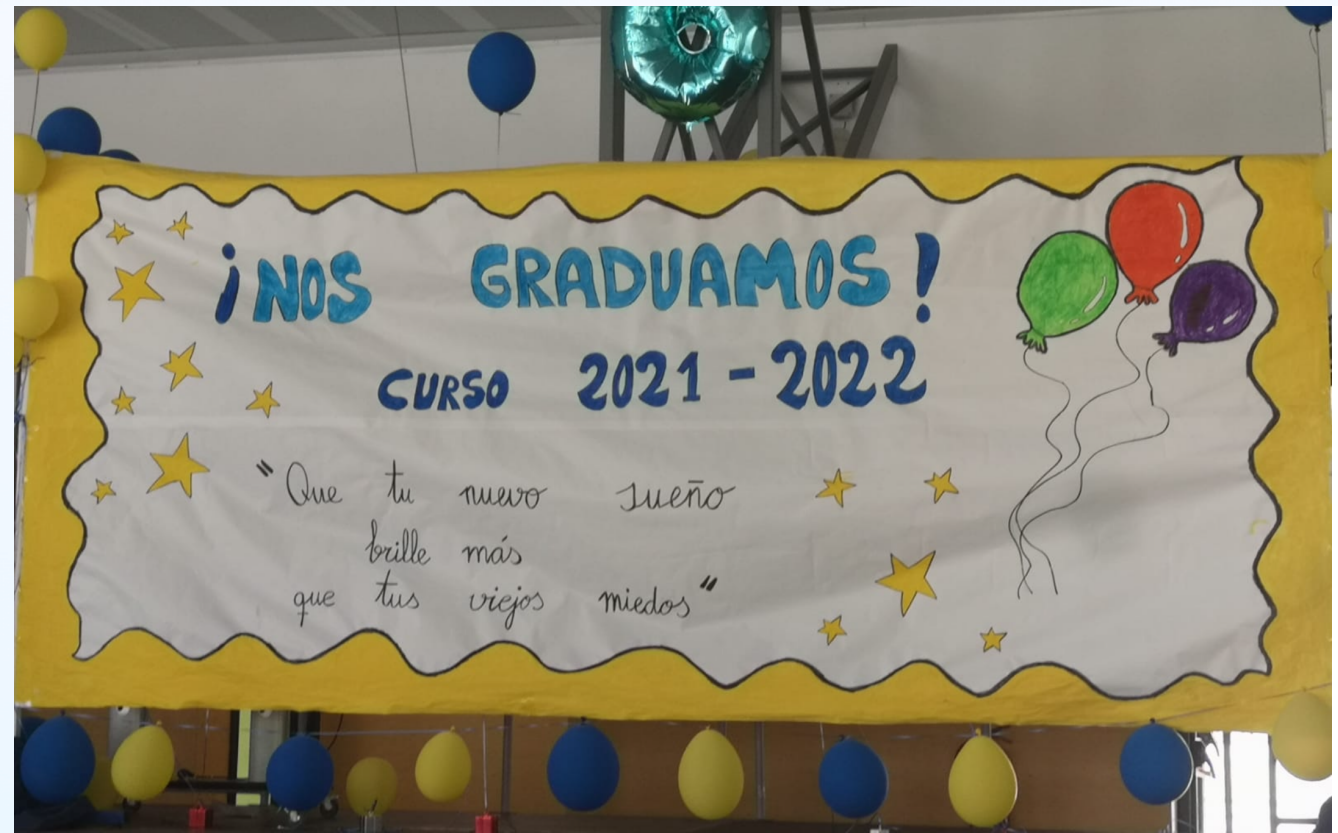 ¡NOS GRADUAMOS!
CURSO 2021-2022
"Que tu nuevo sueño
brille más
que tus viejos miedos"